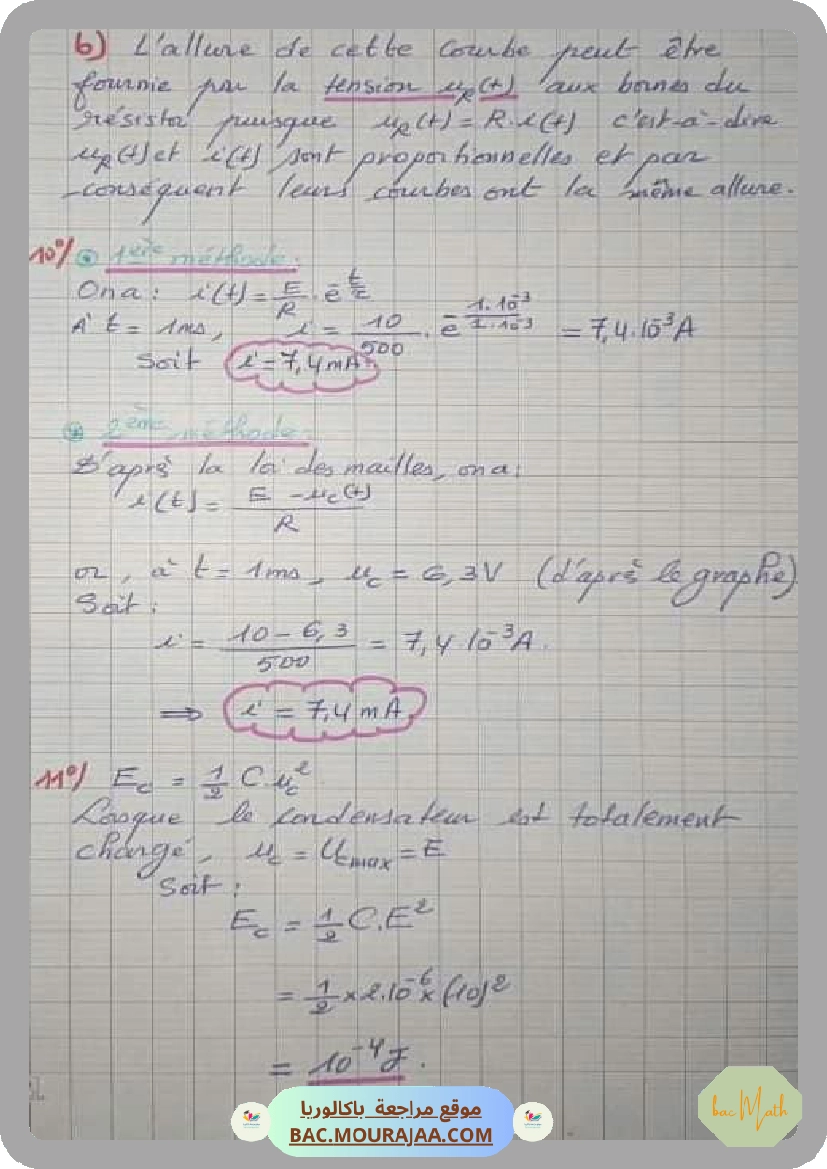 b) L'allure de cette courbe peut être
fournie par la tension uR(t) aux bornes du
résistor puisque uR(t) = R.i(t) c'est-à-dire
uR(t) et i(t) sont proportionnelles et par
conséquent leurs courbes ont la même allure.
10°/ 1ère méthode:
On a: i(t) = E/R . e^(-t/τ)
À t = 1ms, i = 10/500 . e^(-1.10^-3/1.10^-3) = 7,4.10^-3 A
Soit i = 7,4 mA
2ème méthode:
D'après la loi des mailles, on a:
i(t) = (E - uc(t))/R
or, à t = 1ms, uc = 6,3V (d'après le graphe)
Soit:
i = (10 - 6,3)/500 = 7,4 10^-3 A.
⇒ i = 7,4 mA
11°/ Ec = 1/2 C.uc²
Lorsque le condensateur est totalement
chargé, uc = Ucmax = E
Soit:
Ec = 1/2 C.E²
= 1/2 x 2.10^-6 x (10)²
= 10^-4 J.
موقع مراجعة باكالوريا
BAC.MOURAJAA.COM
bac Math